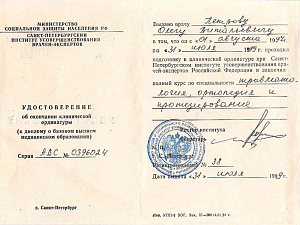 МИНИСТЕРСТВО
СОЦИАЛЬНОЙ ЗАЩИТЫ НАСЕЛЕНИЯ РФ
САНКТ-ПЕТЕРБУРГСКИЙ
ИНСТИТУТ УСОВЕРШЕНСТВОВАНИЯ
ВРАЧЕЙ-ЭКСПЕРТОВ
УДОСТОВЕРЕНИЕ
об окончании клинической
ординатуры
(к диплому о базовом высшем
медицинском образовании)
Серия АВС № 0396024
г. Санкт-Петербург
Выдано врачу Петрову
Олегу Витальевичу
в том, что он с «01» августа 1997
по «31» июля 1999 г. прошел
подготовку в клинической ординатуре при Санкт-
Петербургском институте усовершенствования вра-
чей-экспертов Российской Федерации и закончил
полный курс по специальности травмато-
логия, ортопедия и
протезирование
Ректор института
Секретарь
Регистрационный № 38
Дата выдачи «31» июля